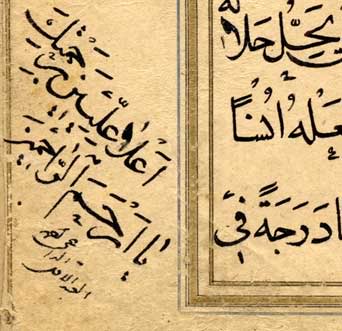 يحلّ حلاله
عله اُنسًا
دَرَجَةً فِي
اعلا عليّين برحمتك
يا ارحم الراحمين